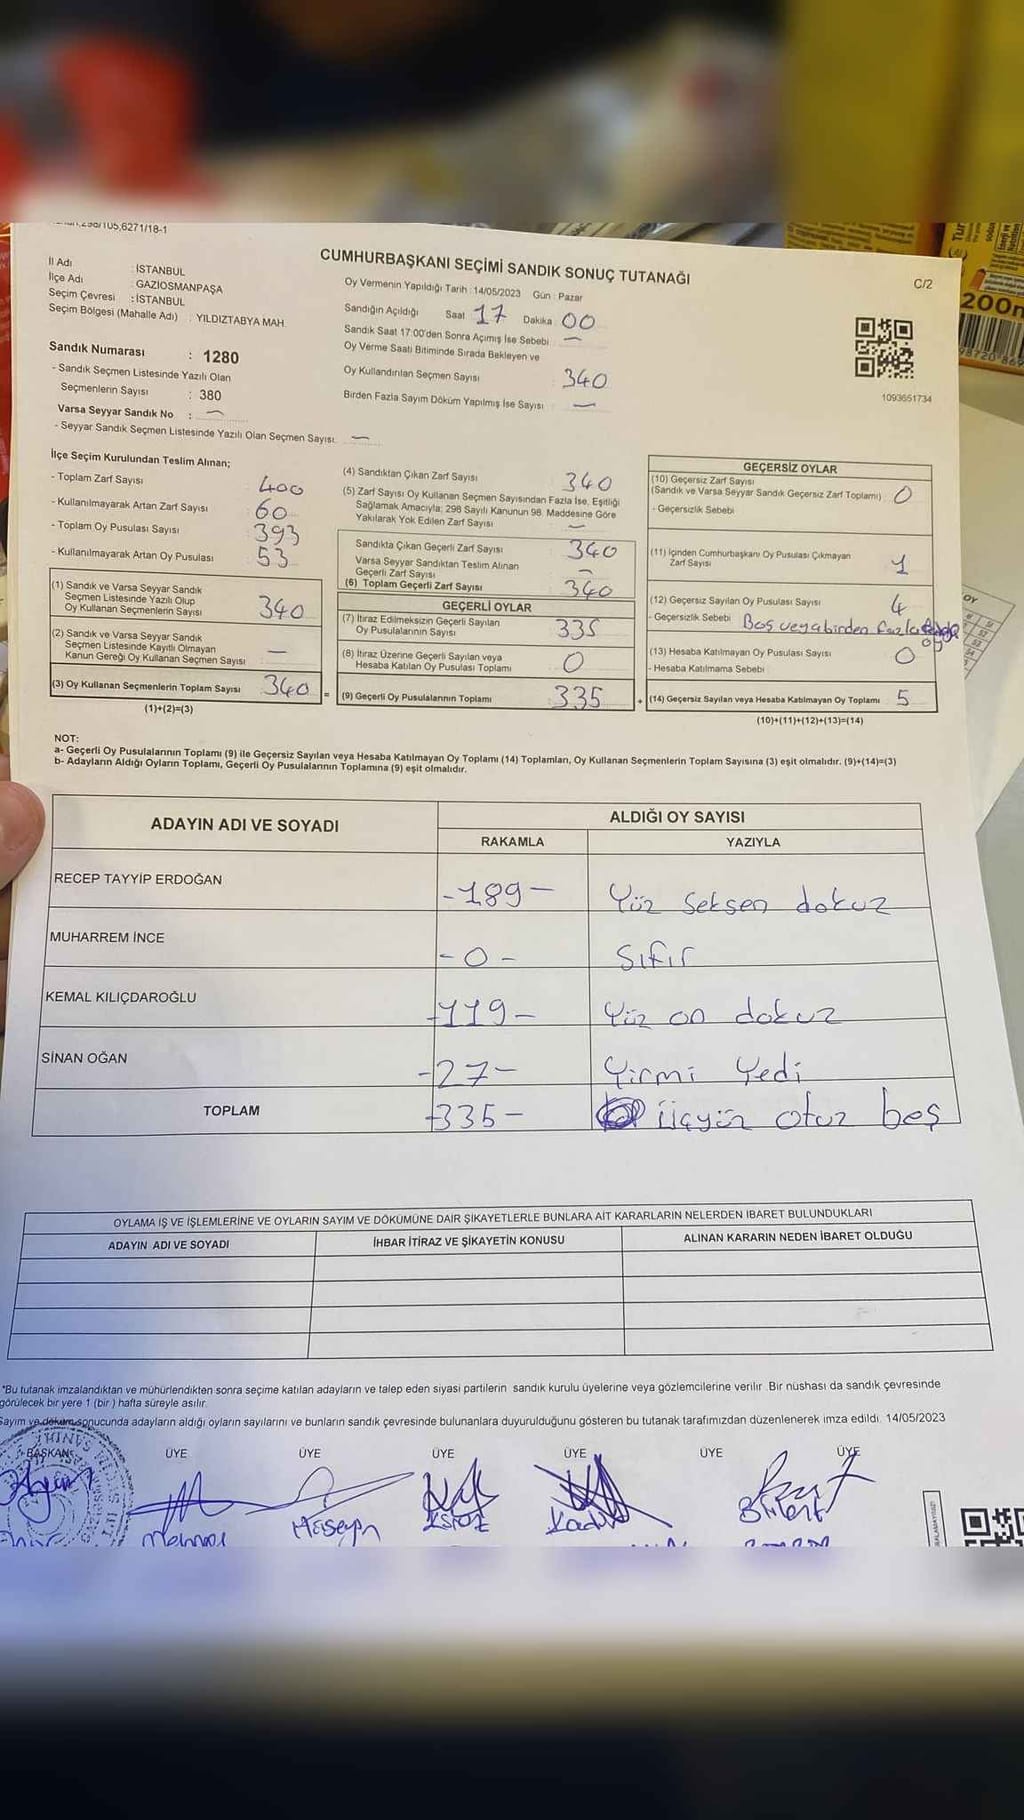 298/105,6271/18-1
CUMHURBAŞKANI SEÇİMİ SANDIK SONUÇ TUTANAĞI
C/2
İl Adı : İSTANBUL
İlçe Adı : GAZİOSMANPAŞA
Seçim Çevresi : İSTANBUL
Seçim Bölgesi (Mahalle Adı) : YILDIZTABYA MAH.
Sandık Numarası : 1280
- Sandık Seçmen Listesinde Yazılı Olan
Seçmenlerin Sayısı : 380
Varsa Seyyar Sandık No : —
- Seyyar Sandık Seçmen Listesinde Yazılı Olan Seçmen Sayısı: —
Oy Vermenin Yapıldığı Tarih : 14/05/2023 Gün : Pazar
Sandığın Açıldığı Saat 17 Dakika 00
Sandık Saat 17:00'den Sonra Açımış İse Sebebi : —
Oy Verme Saati Bitiminde Sırada Bekleyen ve
Oy Kullandırılan Seçmen Sayısı : 340
Birden Fazla Sayım Döküm Yapılmış İse Sayısı : —
1093651734
İlçe Seçim Kurulundan Teslim Alınan;
- Toplam Zarf Sayısı 400
- Kullanılmayarak Artan Zarf Sayısı 60
- Toplam Oy Pusulası Sayısı 393
- Kullanılmayarak Artan Oy Pusulası 53
(1) Sandık ve Varsa Seyyar Sandık
Seçmen Listesinde Yazılı Olup
Oy Kullanan Seçmenlerin Sayısı 340
(2) Sandık ve Varsa Seyyar Sandık
Seçmen Listesinde Kayıtlı Olmayan
Kanun Gereği Oy Kullanan Seçmen Sayısı —
(3) Oy Kullanan Seçmenlerin Toplam Sayısı 340 =
(1)+(2)=(3)
(4) Sandıktan Çıkan Zarf Sayısı 340
(5) Zarf Sayısı Oy Kullanan Seçmen Sayısından Fazla İse, Eşitliği
Sağlamak Amacıyla; 298 Sayılı Kanunun 98. Maddesine Göre
Yakılarak Yok Edilen Zarf Sayısı —
Sandıkta Çıkan Geçerli Zarf Sayısı 340
Varsa Seyyar Sandıktan Teslim Alınan
Geçerli Zarf Sayısı —
(6) Toplam Geçerli Zarf Sayısı 340
GEÇERLİ OYLAR
(7) İtiraz Edilmeksizin Geçerli Sayılan
Oy Pusulalarının Sayısı 335
(8) İtiraz Üzerine Geçerli Sayılan veya
Hesaba Katılan Oy Pusulası Toplamı 0
(9) Geçerli Oy Pusulalarının Toplamı 335 +
GEÇERSİZ OYLAR
(10) Geçersiz Zarf Sayısı
(Sandık ve Varsa Seyyar Sandık Geçersiz Zarf Toplamı) 0
- Geçersizlik Sebebi
(11) İçinden Cumhurbaşkanı Oy Pusulası Çıkmayan
Zarf Sayısı 1
(12) Geçersiz Sayılan Oy Pusulası Sayısı 4
- Geçersizlik Sebebi Boş veya birden fazla oy
(13) Hesaba Katılmayan Oy Pusulası Sayısı 0
- Hesaba Katılmama Sebebi
(14) Geçersiz Sayılan veya Hesaba Katılmayan Oy Toplamı 5
(10)+(11)+(12)+(13)=(14)
NOT:
a- Geçerli Oy Pusulalarının Toplamı (9) ile Geçersiz Sayılan veya Hesaba Katılmayan Oy Toplamı (14) Toplamları, Oy Kullanan Seçmenlerin Toplam Sayısına (3) eşit olmalıdır. (9)+(14)=(3)
b- Adayların Aldığı Oyların Toplamı, Geçerli Oy Pusulalarının Toplamına (9) eşit olmalıdır.
ADAYIN ADI VE SOYADI ALDIĞI OY SAYISI
RAKAMLA YAZIYLA
RECEP TAYYİP ERDOĞAN -189- Yüz seksen dokuz
MUHARREM İNCE -0- Sıfır
KEMAL KILIÇDAROĞLU -119- Yüz on dokuz
SİNAN OĞAN -27- Yirmi Yedi
TOPLAM -335- Üçyüz otuz beş
OYLAMA İŞ VE İŞLEMLERİNE VE OYLARIN SAYIM VE DÖKÜMÜNE DAİR ŞİKAYETLERLE BUNLARA AİT KARARLARIN NELERDEN İBARET BULUNDUKLARI
ADAYIN ADI VE SOYADI İHBAR İTİRAZ VE ŞİKAYETİN KONUSU ALINAN KARARIN NEDEN İBARET OLDUĞU
*Bu tutanak imzalandıktan ve mühürlendikten sonra seçime katılan adayların ve talep eden siyasi partilerin sandık kurulu üyelerine veya gözlemcilerine verilir. Bir nüshası da sandık çevresinde
görülecek bir yere 1 (bir) hafta süreyle asılır.
Sayım ve döküm sonucunda adayların aldığı oyların sayılarını ve bunların sandık çevresinde bulunanlara duyurulduğunu gösteren bu tutanak tarafımızdan düzenlenerek imza edildi. 14/05/2023
BAŞKAN ÜYE ÜYE ÜYE ÜYE ÜYE ÜYE
Hüseyin
200m